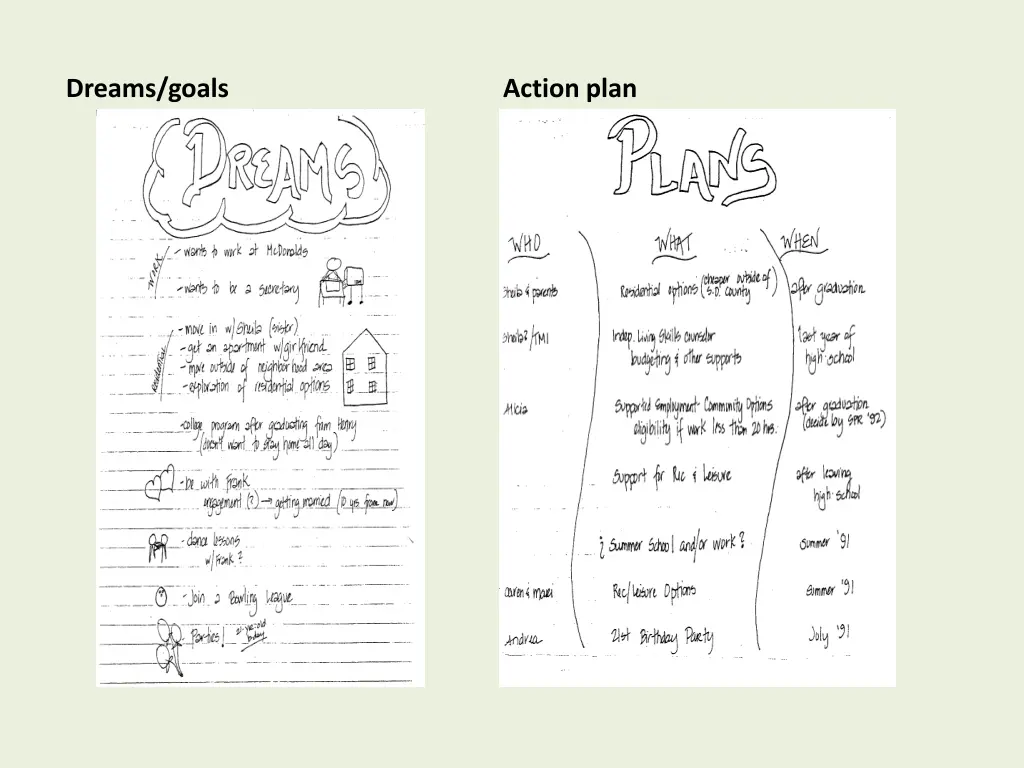 Dreams/goals
DREAMS
WORK
- wants to work at McDonalds
- wants to be a secretary
Residential
- move in w/Sheila (sister)
- get an apartment w/girlfriend
- move outside of neighborhood area
- exploration of residential options
- college program after graduating from Henry
(doesn't want to stay home all day)
- be with Frank
engagement (?) → getting married (10 yrs from now)
- dance lessons
w/Frank?
- Join a Bowling League
- Parties! 21-yr-old b'day
Action plan
PLANS
WHO WHAT WHEN
Sheila & parents Residential options (cheaper outside of S.D. county) after graduation
Sheila?/TMI Indep. Living Skills counselor last year of
budgeting & other supports high school
Alicia Supported Employment-Community Options after graduation
eligibility if work less than 20 hrs. (decide by SPR '92)
Support for Rec & Leisure after leaving
high school
¿ Summer School and/or work? summer '91
& Rec/Leisure Options summer '91
Andrea 21st Birthday Party July '91